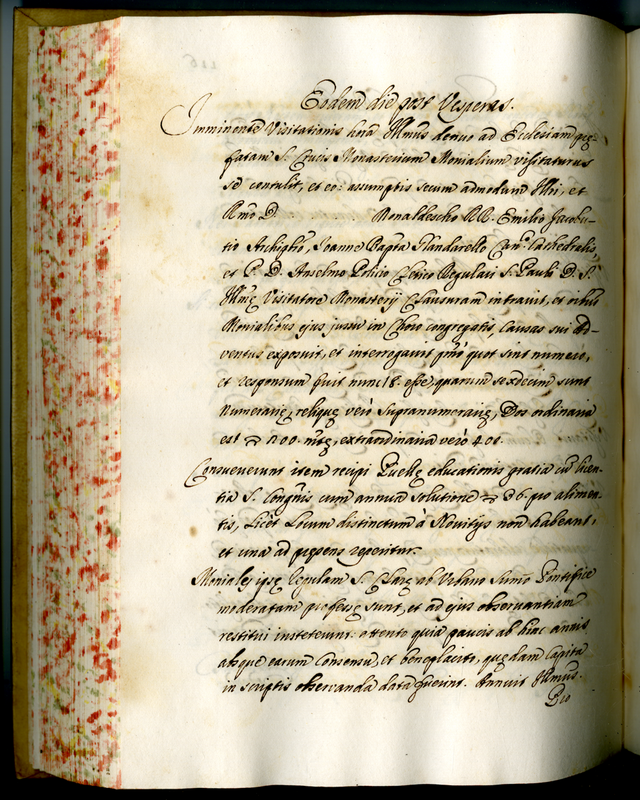 Eodem die post Vesperas.
Imminente Visitationis hora Illmus denuo ad Ecclesiam pre-
fatam S. Crucis Monasterium Monialium visitaturus
se contulit, et eo: assumptis secum admodum Illri, et
Rmo D. .......... Monaldescho RR. Emilio Jacobu-
tio Archipbro, Joanne Bapta Mandarello Can.o Cathedralis,
et P. D. Anselmo Clerico Regulari S. Pauli D. S.
Illmus Visitatore Monasterij Clausuram intravit, et orbus
Monialibus ejus jussu in Choro congregatis, Causas sui Ad-
ventus exposuit, et interrogavit pmo quot sint numero,
et responsum fuit num. 18. esse, quarum sexdecim sunt
numerarie, relique vero supranumerarie, Dos ordinaria
est 200. extraordinaria vero 400.
Consueverunt item recipi Puelle educationis gratia cum licen-
tia S. Congnis cum annua solutione 36. pro alimen-
tis, licet Locum distinctum a Novitijs non habeant,
et una ad presens reperitur.
Moniales ipse Regulam S. Clare ab Urbano Summo Pontifice
moderatam professe sunt, et ad ejus observantiam
restitui institerunt: attento quia paucis ab hinc annis
absque earum Consensu, et beneplacito, quedam Capita
in scriptis observanda data fuerint. Annuit Illmus.
Pro